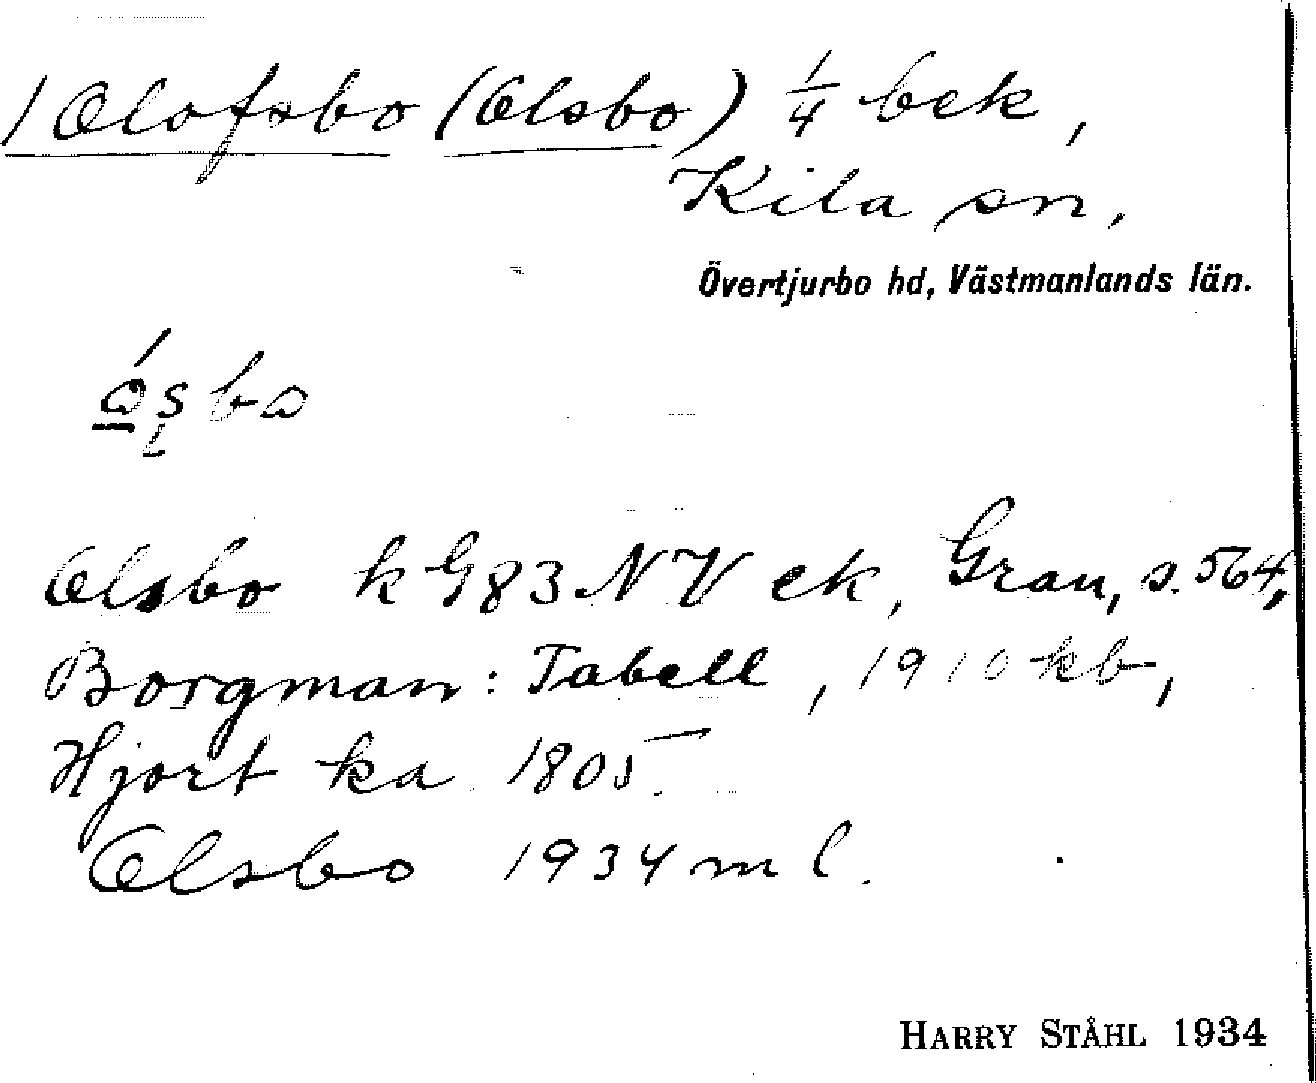 / Olofsbo (Olsbo) 1/4 bek,
Kila sn,
Övertjurbo hd, Västmanlands län.
Olsbo k G83 NV ek, Grau, s. 564,
Borgman: Tabell, 1910 kb,
Hjort ka 1805
Olsbo 1934 ml.
HARRY STÅHL 1934